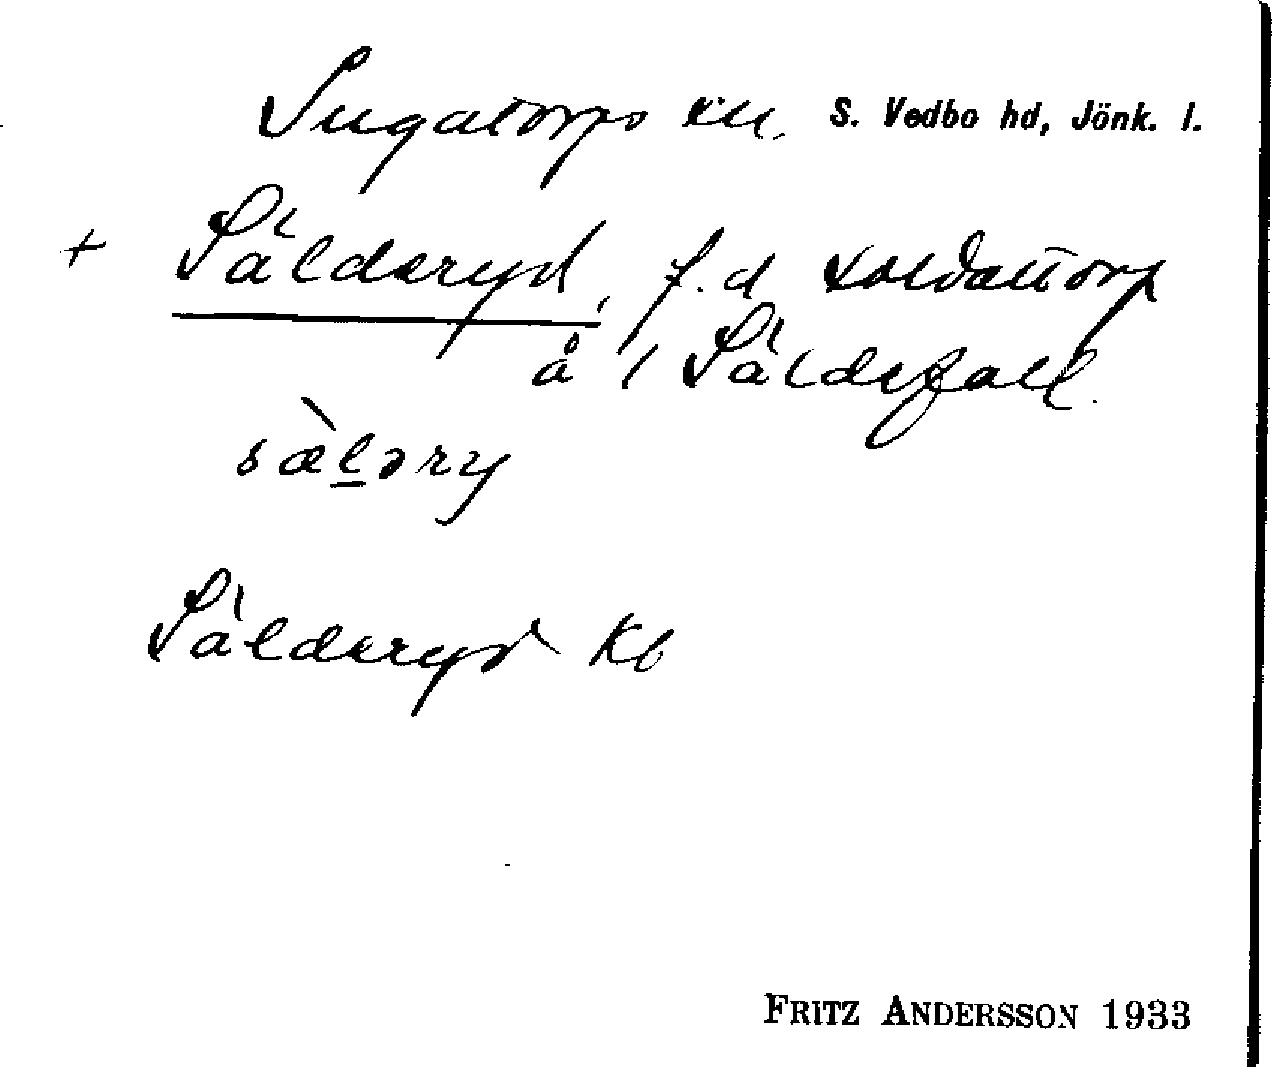 Ingatorps sn. S. Vedbo hd, Jönk. l.
+ Sälderyd, f.d soldattorp
å 1 Säldefall.
sæ̀ləry
Sälderyd Kb
FRITZ ANDERSSON 1933